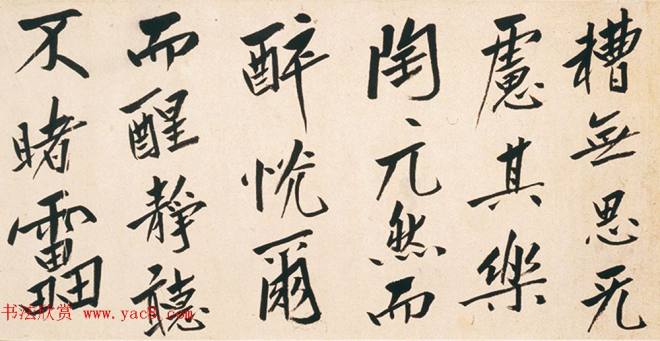 糟無思无
慮其樂
陶〻兀然而
醉怳爾
而醒靜聽
不睹靁
书法欣赏 www.yac8.com